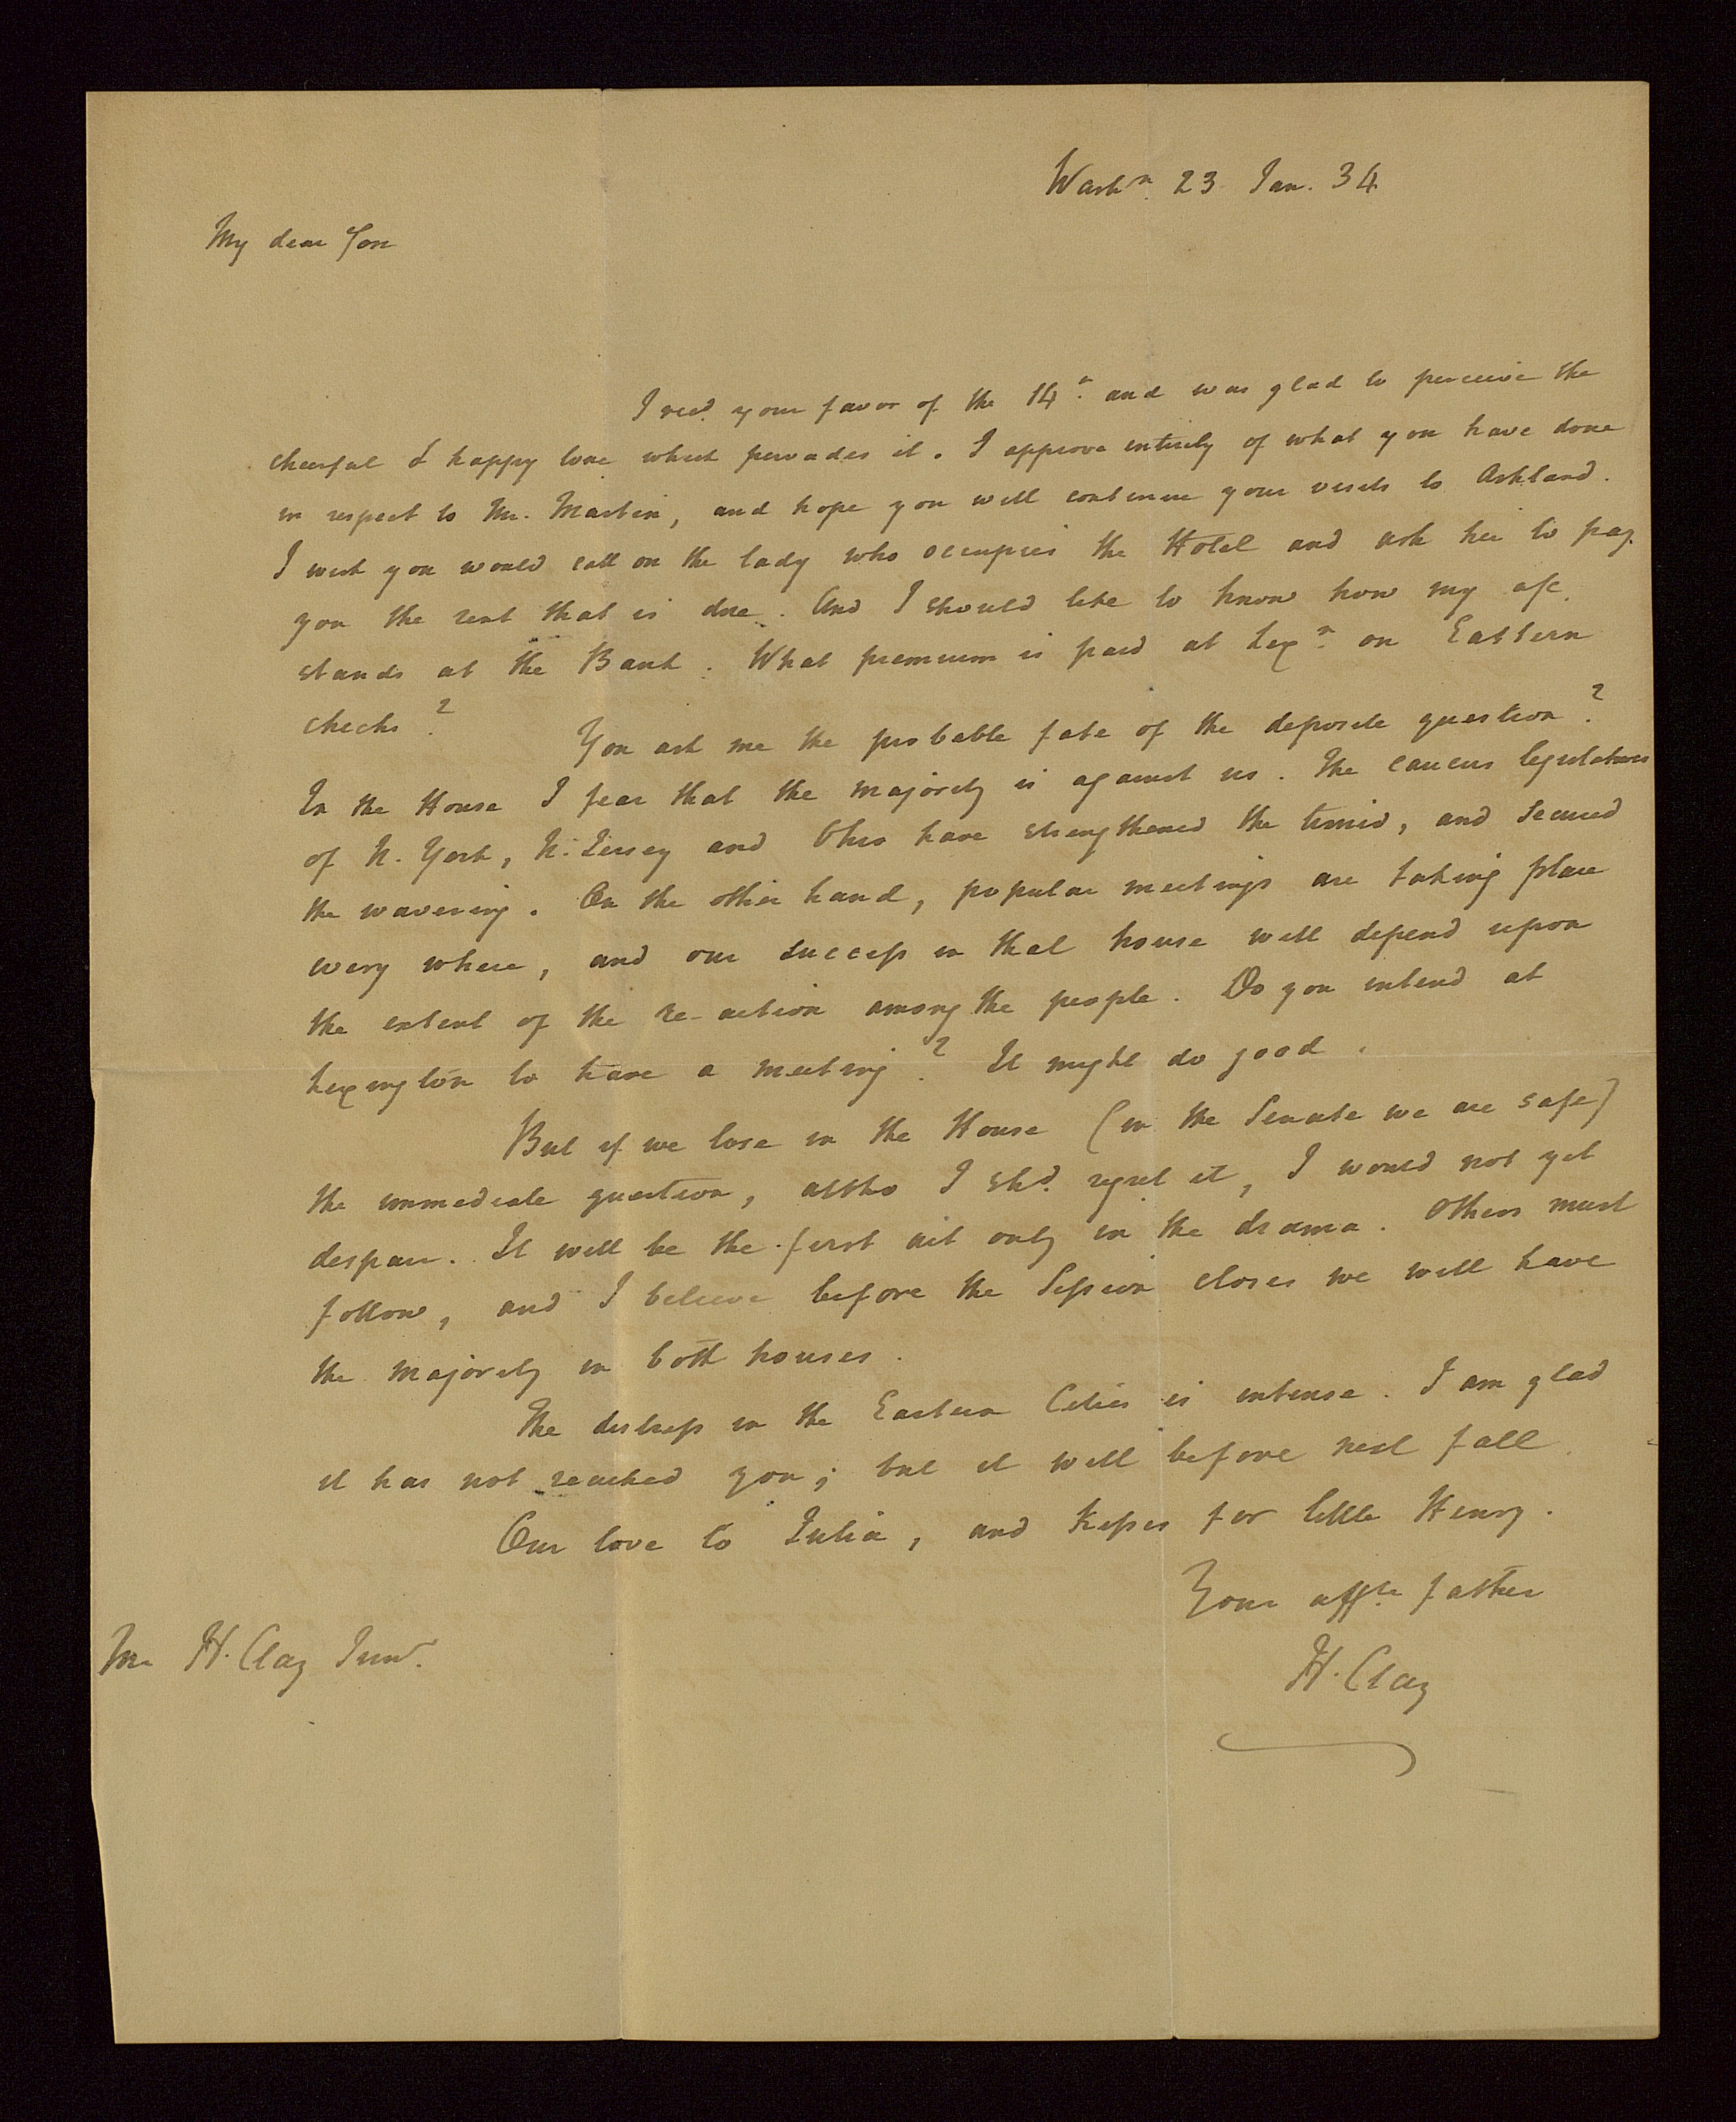 Washn. 23 Jan. 34
My dear Son
I recd. your favor of the 14h. and was glad to perceive the
cheerful & happy tone which pervades it. I approve entirely of what you have done
in respect to Mr. Martin, and hope you will continue your visits to Ashland.
I wish you would call on the lady who occupies the Hotel and ask her to pay
you the rent that is due. And I should like to know how my a/c
stands at the Bank. What premium is paid at Lexn. on Eastern
checks?
You ask me the probable fate of the deposite question?
In the House I fear that the majority is against us. The caucus legislatures
of N. York, N. Jersey and Ohio have strengthened the timid, and secured
the wavering. On the other hand, popular meetings are taking place
every where, and our success in that house will depend upon
the extent of the re-action among the people. Do you intend at
Lexington to have a meeting? It might do good.
But if we lose in the House (in the Senate we are safe)
the immediate question, altho I shd. regret it, I would not yet
despair. It will be the first act only in the drama. Others must
follow, and I believe before the Session closes we will have
the majority in both houses.
The distress in the Eastern Cities is intense. I am glad
it has not reached you; but it will before next fall.
Our love to Julia, and Kisses for little Henry.
Your affte. father
H. Clay
Mr H. Clay Junr.